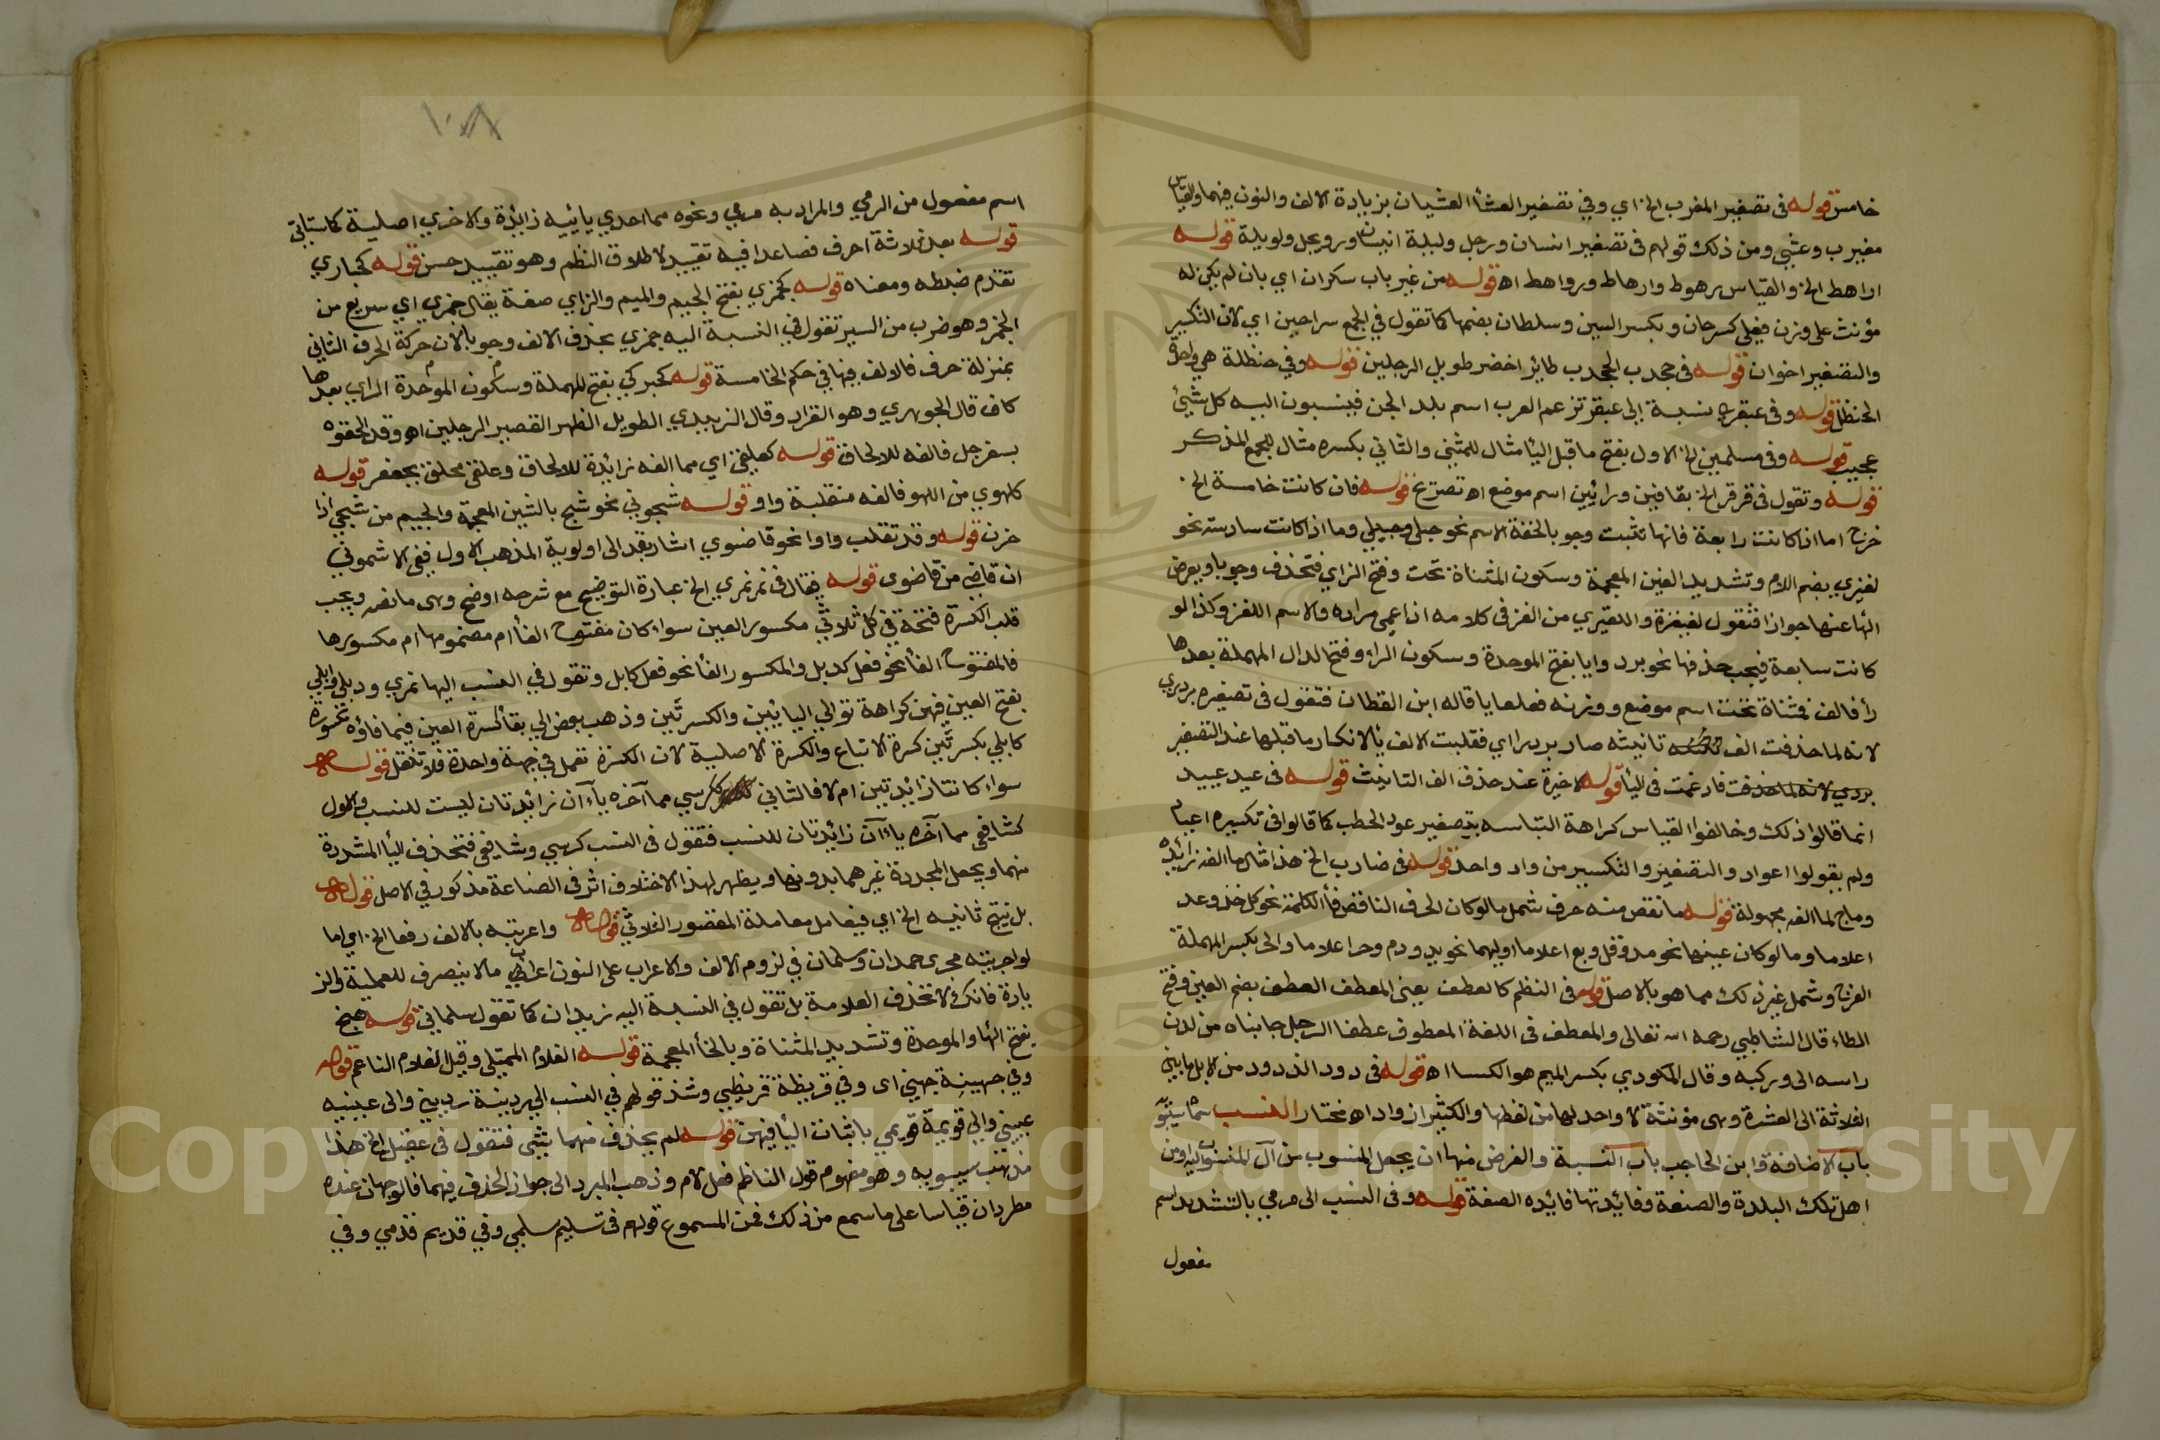 خامس قوله في تصغير المغرب الخ اي وفي تصغير العشأ العشيان بزيادة الالف والنون فيهما والقياس
مغيرب وعشي ومن ذلك قولهم في تصغير انسان ورجل وليلة انيسان ورويجل ولويلة قوله
اراهط الخ والقياس رهوط وارهاط ورواهط اه قوله من غير باب سكران اي بان لم يكن له
مؤنث على وزن فعلى كسرحان وبكسر السين وسلطان بضمها كما تقول في الجمع سراحين اي لان التكبير
والتصغير اخوان قوله في جحدب الجحدب طائر اخضر طويل الرجلين قوله وفي حنظلة هي واحدة
الحنظل قوله وفي عبقري نسبة إلى عبقر تزعم العرب اسم بلد الجن فينسبون اليه كل شيئ
عجيب قوله وفي مسلمين الخ الاول بفتح ما قبل اليأ مثال للمثنى والثاني بكسره مثال للجمع المذكر
قوله وتقول في قرقر الخ بقافين ورائين اسم موضع اه تصريح قوله فان كانت خامسة الخ
خرج اما اذا كانت رابعة فانها تثبت وجوبا لخفة الاسم نحو حبلى وحبيلى وما اذا كانت سادسة نحو
لغيزي بضم اللام وتشديد الغين المعجمة وسكون المثناة تحت وفتح الزاي فتحذف وجوبا ويعوض
الهأ عنها جوازا فتقول لغيغزة واللغيزي من الغز في كلامه اذا عمى مراده والاسم اللغز وكذا لو
كانت سابعة فيجب حذفها نحو بردرايا بفتح الموحدة وسكون الراء وفتح الدال المهملة بعدها
رأ فالف فمثناة تحت اسم موضع ووزنه فعلعايا قاله ابن القطان فتقول في تصغيره بريدري
لانه لما حذفت الف تانيثه صار بردراي فقلبت الالف يأ لانكسار ما قبلها عند التصغير
بردي لانه لما حذفت فادغمت في اليأ الاخيرة عند حذف الف التانيث قوله في عيد عييد
انما قالوا ذلك وخالفوا القياس كراهة التباسه بتصغير عود الحطب كما قالوا في تكسيره اعياد
ولم يقولوا اعواد والتصغير والتكسير من واد واحد قوله في ضارب الخ هذا مثال ما الفه زائدة
وماج لما الفه مجهولة قوله ما نقص منه حرف شمل ما لو كان الحرف الناقص فأ الكلمة نحو كل خذ وعد
اعلاما وما لو كان عينها نحو مذ وقل وبع اعلاما اوليهما نحو يد ودم وحر اعلاما والحر بكسر المهملة
الفرج وشمل غير ذلك مما هو بالاصل قوله في النظم كالعطف يعني المعطف العطف بضم العين وفتح
الطاء قال الشاطبي رحمه الله تعالى والمعطف في اللغة المعطوف عطفا الرجل جانباه من لدن
راسه الى وركيه وقال المكودي بكسر الميم هو الكسا اه قوله في ذود الذود من الابل ما بين
الثلاثة الى العشرة وهي مؤنثة لا واحد لها من لفظها والكثير اذواد اه مختار النسب سماه سيبويه
باب الاضافة وابن الحاجب باب النسبة والغرض منها ان يجعل المنسوب من آل المنسوب اليه او من
اهل تلك البلدة والصنعة وفائدتها فائدة الصفة قوله وفي النسب الى مرمي بالتشديد اسم
مفعول
١٠٨
اسم مفعول من الرمي والمراد به مرمي ونحوه مما احدي يائيه زائدة والاخري اصلية كما سيأتي
قوله بعد ثلاثة احرف فصاعدا فيه تقييد لاطلاق النظم وهو تقييد حسن قوله كحباري
تقدم ضبطه ومعناه قوله كجمزي بفتح الجيم والميم والزاي صفة يقال جمزي اي سريع من
الجمز وهو ضرب من السير تقول في النسبة اليه جمزي بحذف الالف وجوبا لان حركة الحرف الثاني
بمنزلة حرف فالالف فيها في حكم الخامسة قوله كحبركي بفتح المهملة وسكون الموحدة الراي بعدها
كاف قال الجوهري وهو القراد وقال الزبيدي الطويل الظهر القصير الرجلين اه وقد الحقوه
بسفرجل فالفه للالحاق قوله كعلقي اي مما الفه زائدة للالحاق وعلقى محلق بجعفر قوله
كلهوي من اللهو فالفه منقلبة واو قوله شجوني نحو شج بالشين المعجمة والجيم من شجي اذا
حزن قوله وقد تقلب واوا نحو قاضوي اشار بقد الى اولوية المذهب الاول ففي الاشموني
ان قاضي من قاضوي قوله فيقال في نمر نمري الخ عبارة التوضيح مع شرحه اوضح وهي ما نصه ويجب
قلب الكسرة فتحة في كل ثلاثي مكسور العين سواء كان مفتوح الفأ ام مضمومها ام مكسورها
فالمفتوح الفأ نحو فعل كدبل والمكسور الفأ نحو فعل كابل وتقول في النسب اليها نمري ودبلي وابلي
بفتح العين فيهن كراهة توالي اليايين والكسرتين وذهب بعض الى بقأ كسرة العين فيما فاؤه مكسورة نحو
كابلي بكسرتين كسرة الاتباع والكسرة الاصلية لان الكسرة تعمل في جهة واحدة فلا تثقل قوله
سواء كانتا زائدتين ام لا فالثاني ككرسي مما آخره ياءان زائدتان ليست للنسب والاول
كشافعي مما آخره ياءان زائدتان للنسب فتقول في النسب كرسي وشافعي فتحذف اليأ المشددة
منهما ويجعل المجددة غيرهما بدونها ويظهر لهذا الاختلاف اثر في الصناعة مذكور في الاصل قوله
بل يفتح ثانيه الخ اي فيعامل معاملة المقصور الثلاثي قوله واعربته بالالف رفعا الخ اي اما
لو اجريته مجرى حمدان وسلمان في لزوم الالف والاعراب على النون اعراب ما لا ينصرف للعلمية والز
يادة فانك لا تحذف العلامة بل تقول في النسبة اليه زيدان كما تقول سلماني قوله هبيخ
بفتح الهأ والموحدة وتشديد المثناة وبالخأ المعجمة قوله الغلام الممتلي وقيل الغلام الناعم قوله
وفي جهينة جهني اى وفي قريظة قريظي وشذ قولهم في النسب الى ردينة رديني والى عيينة
عييني والى قويمة قويمي باثبات اليأ فيهن قوله لم يحذف منهما شئ فتقول في عقيل الخ هذا
مذهب سيبويه وهو مفهوم قول الناظم فعل لام وذهب المبرد الى جواز الحذف فيهما فالوجهان عنده
مطردان قياسا على ما سمع من ذلك فمن المسموع قولهم في سليم سلمي وفي قديم قدمي وفي
Copyright © King Saud University
1957